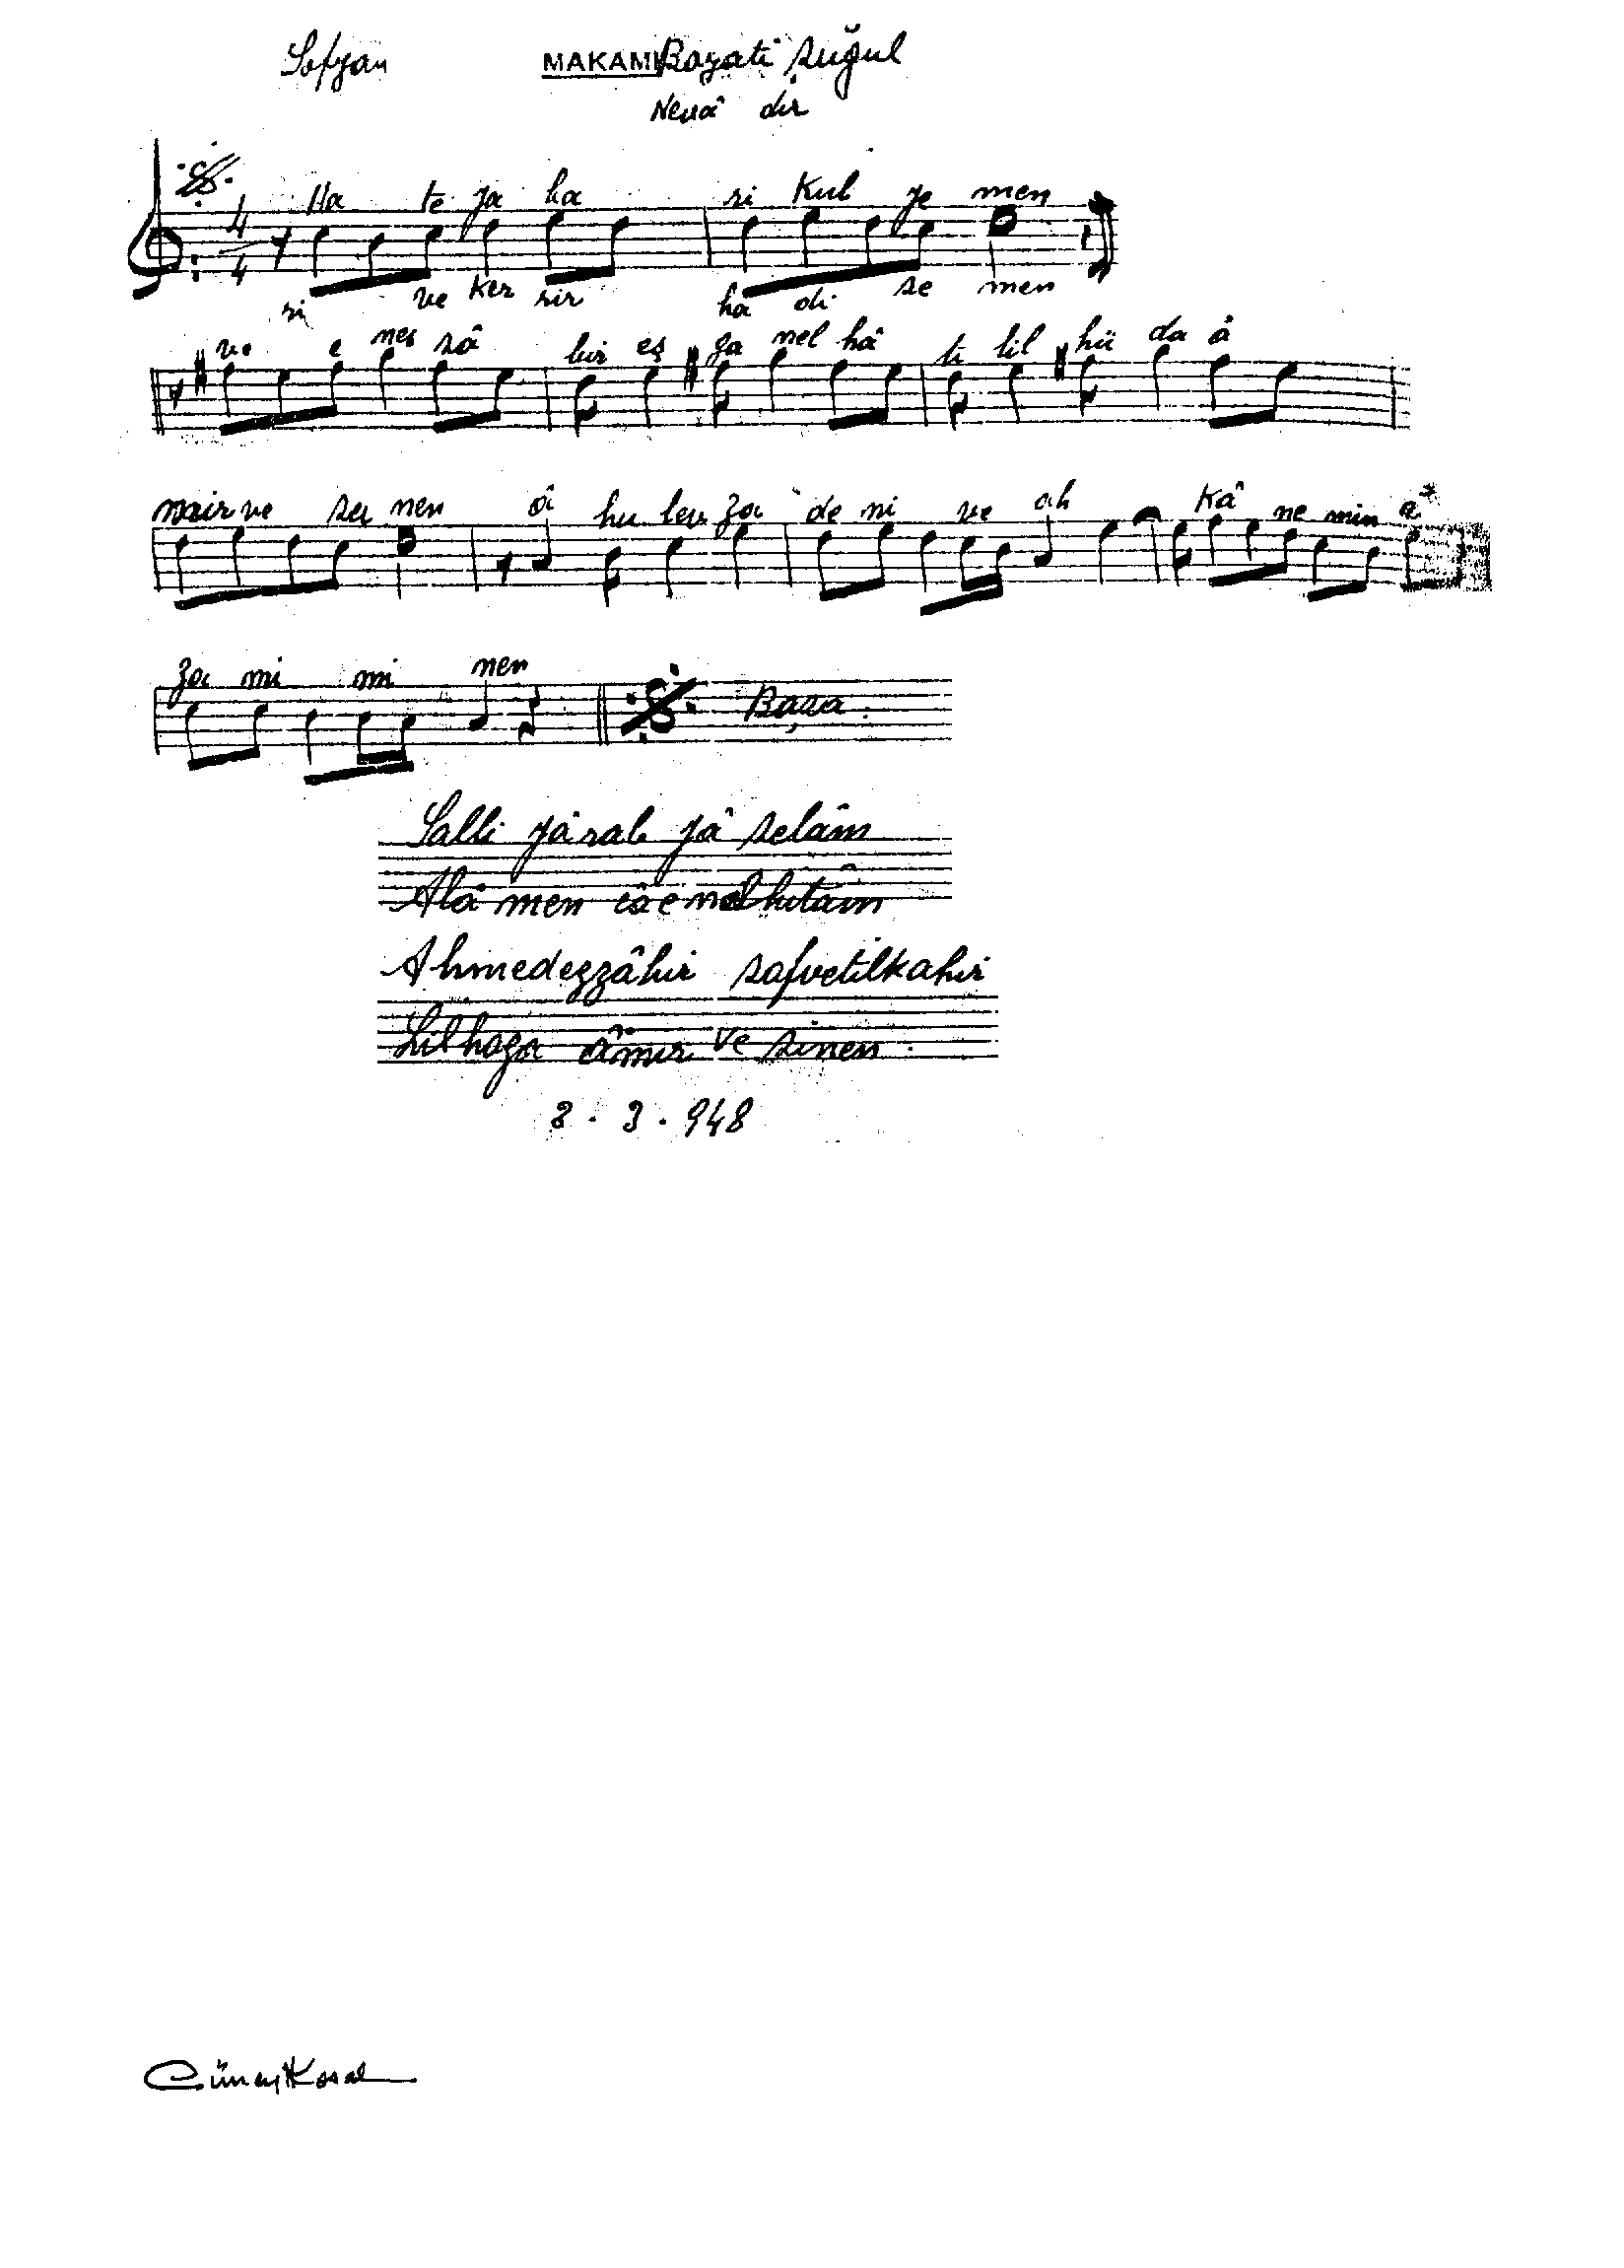 Sofyan MAKAMI Bayati suğul
Nevâ dır
4 Ha te ya ha ri kul ye men
4 ri ve ker rir ha di se men
ve e nes sâ hir eş ga nel hâ ti lil hü da â
mir ve su nen â hu lev za de ni ve ah kâ ne min e
za mi mi nen
Başa
Salli yâ rab yâ selâm
Alâ men câe nelhitâm
Ahmedezzâhir safvetilkahir
Lilhaza âmir ve sinen
3.948
Güney Kosal